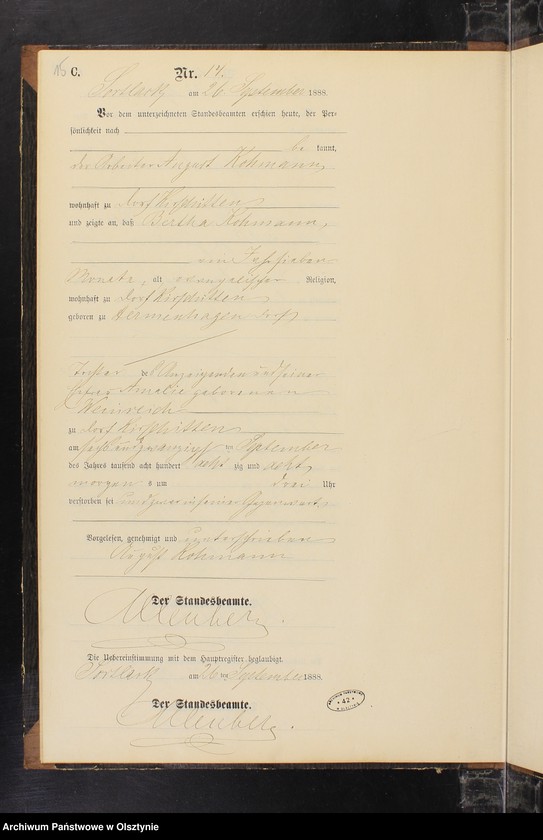 C.
Nr. 14.
am 26 September 1888.
Vor dem unterzeichneten Standesbeamten erschien heute, der Per-
sönlichkeit nach
be kannt,
der Arbeiter August Kohmann,
wohnhaft zu Dorf
und zeigte an, daß Bertha Kohmann,
ein Jahr sieben
Monate, alt evangelischer Religion,
wohnhaft zu Dorf
geboren zu Hermenhagen Dorf
Tochter des Anzeigenden und seiner
Ehefrau Amalie geborenen
Weinreich
zu Dorf
am sechsundzwanzigsten September
des Jahrs tausend acht hundert acht zig und acht,
morgen s um drei Uhr
verstorben sei und zwar in seiner Gegenwart.
Vorgelesen, genehmigt und unterschrieben
August Kohmann
Der Standesbeamte.
Die Uebereinstimmung mit dem Hauptregister beglaubigt.
am 26 ten September 1888.
Der Standesbeamte.
42
Archiwum Państwowe w Olsztynie